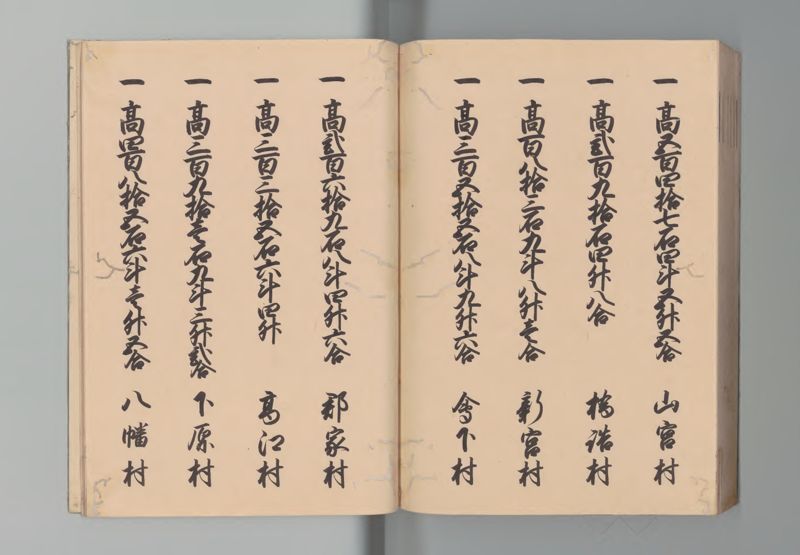 一 高五百四拾七石四斗五升五合 山宮村
一 高弐百九拾石四升八合 橋詰村
一 高百八拾二石九斗八升壱合 新宮村
一 高三百五拾五石八斗九升六合 會下村
一 高弐百六拾九石八斗四升六合 郡家村
一 高三百三拾五石六斗四升 高江村
一 高三百九拾壱石九斗三升弐合 下原村
一 高四百八拾五石六斗壱升五合 八幡村